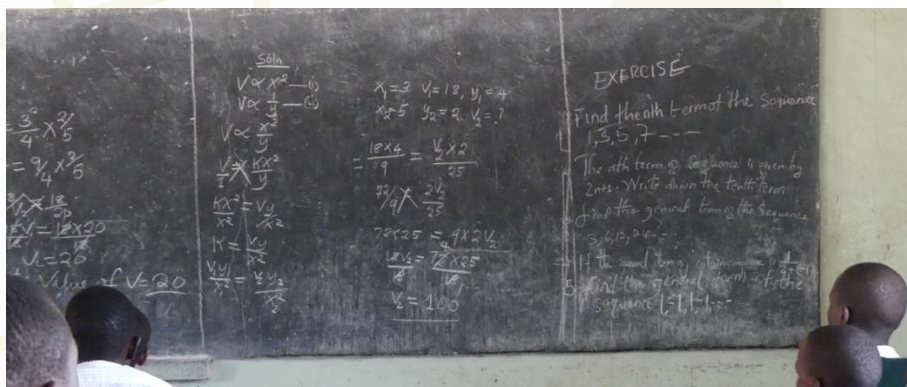 = 3²/4 × 2/5
= 9/4 × 2/5
V = 18 × 20
V = 20
Value of V = 20
Soln
V ∝ x² — (i)
V ∝ 1/y — (ii)
V ∝ x²/y
V/1 = Kx²/y
Kx²/x² = Vy/x²
K = Vy/x²
V₁y₁/x₁² = V₂y₂/x₂²
x₁=3 V₁=18, y₁=4
x₂=5 y₂=2 V₂=?
= 18×4/9 = V₂×2/25
72/9 = 2V₂/25
72×25 = 9×2V₂
18V₂/18 = 72×25/18
V₂ = 100
EXERCISE
Find the nth term of the Sequence
1,3,5,7 ---
The nth term of sequence is given by
2n+1. Write down the tenth term
find the general term of the sequence
3,6,12,24 ---
5 Find the general term of the
sequence 1,-1,1,-1,---